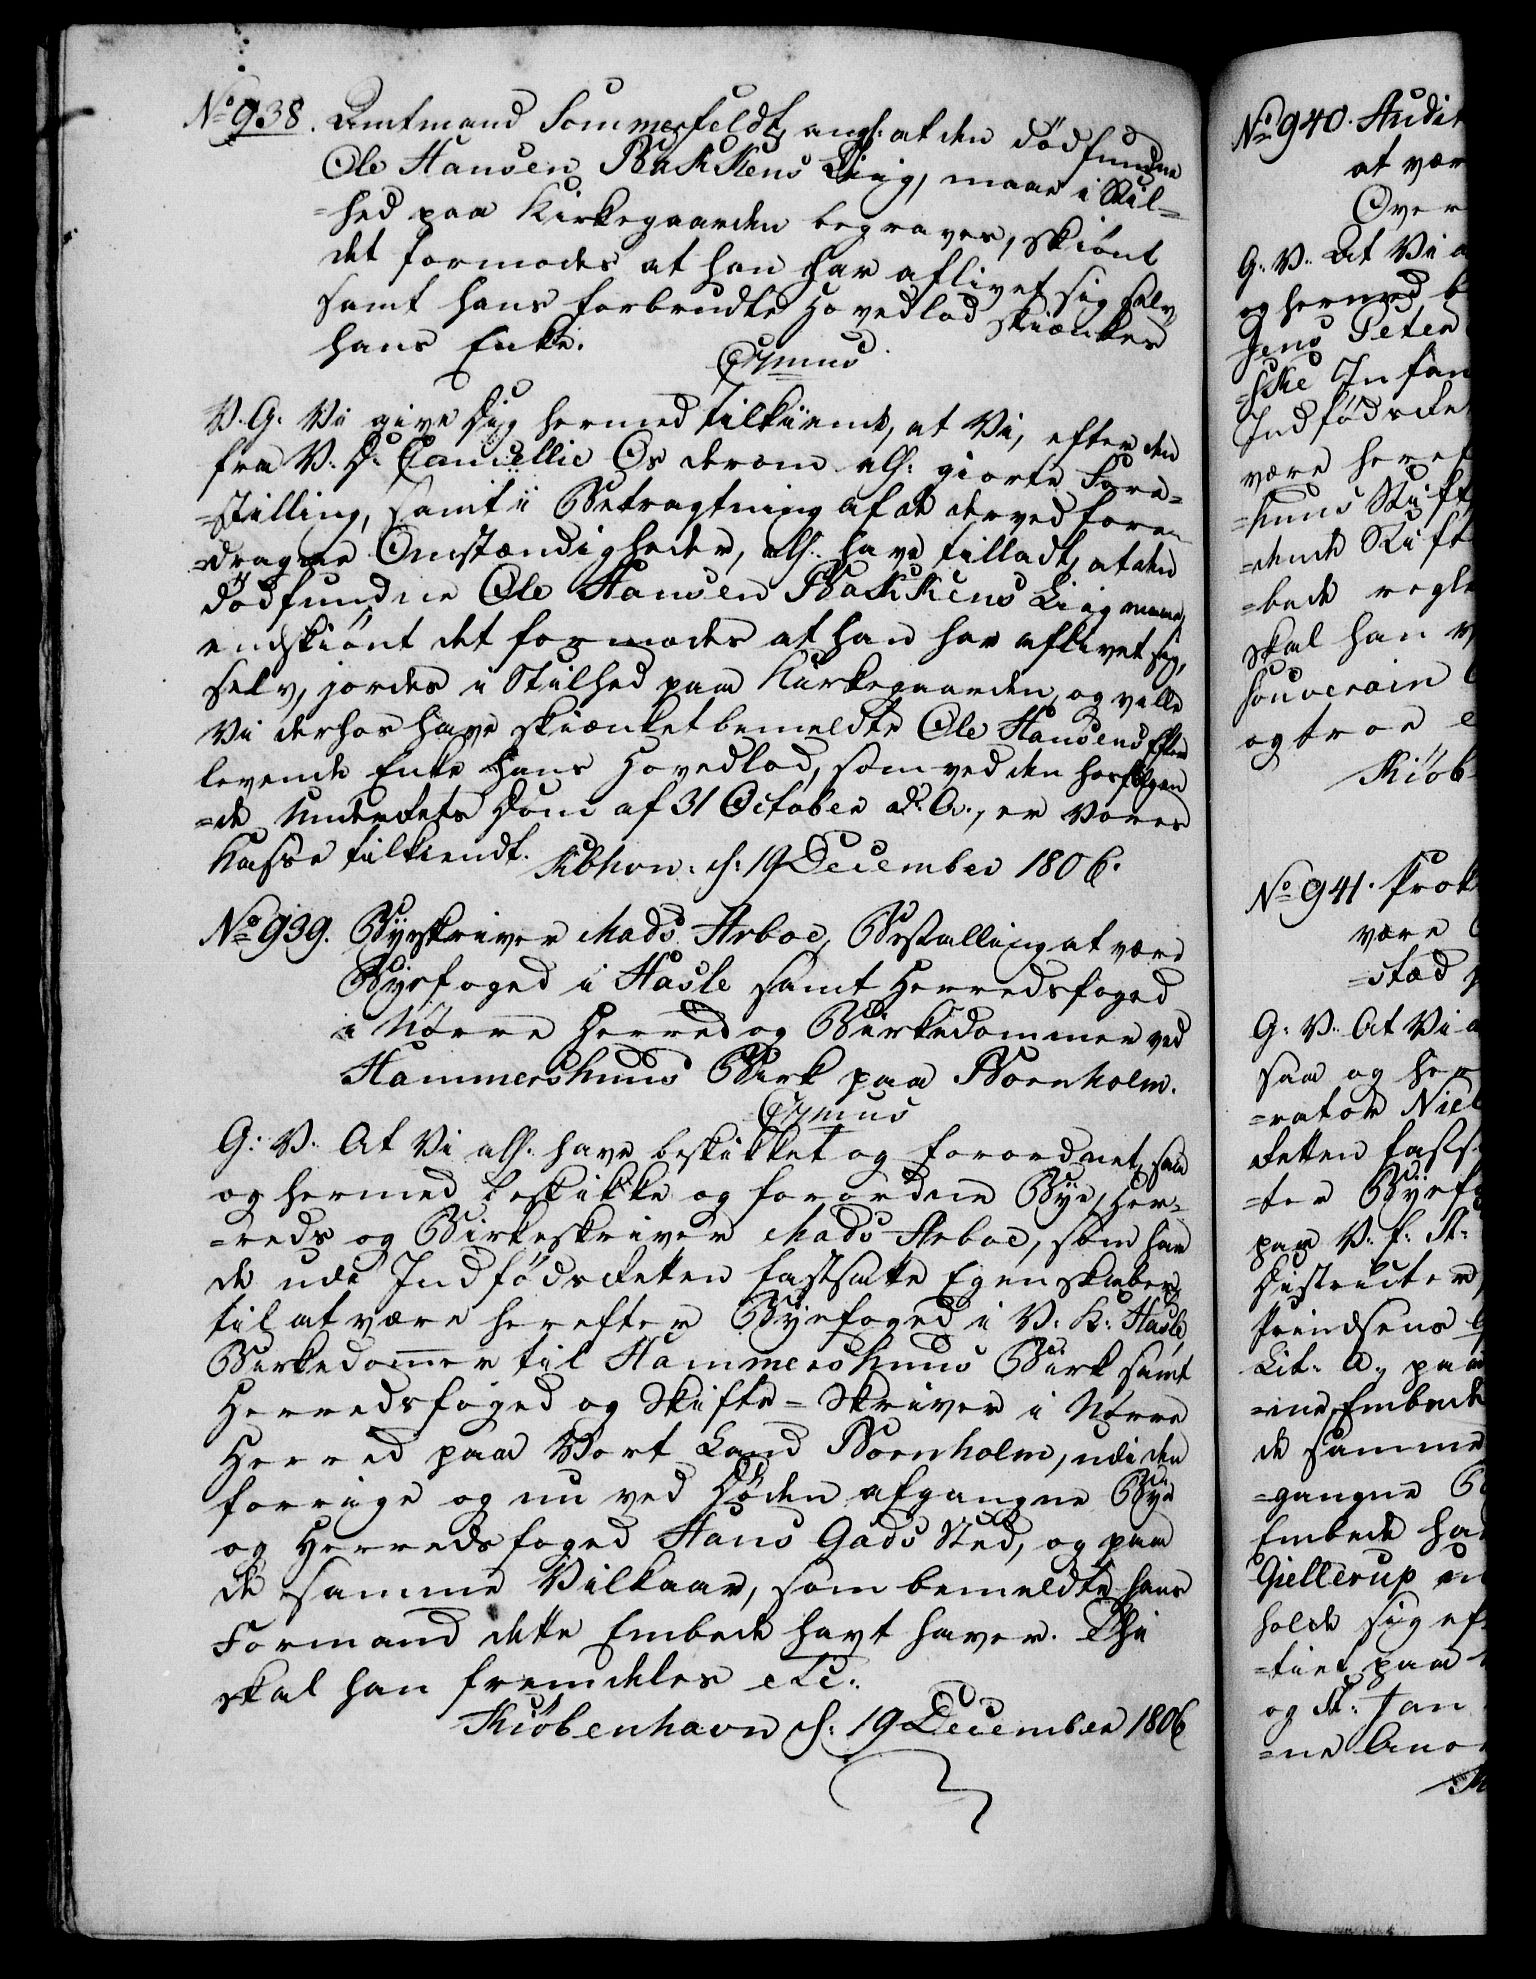 No 938. Amtmand Sommerfeldt, angl: at den dødfundne
Ole Hansen Bakkens Liig, maae i Stil-
=hed paa Kirkegaarden begraves, skiønt
det formodes at han har aflivet sig selv,
samt hans forbrudte Hovedlod skiænkes
hans Enke.
C7mus
V. G. Vi give Dig hermed tilkiende, at Vi, efter den
fra V. D. Cancellie Os derom alh: giorte Fore=
=stilling, samt i Betragtning af de derved fore-
=dragne Omstændigheder, alh: have tilladt, at den
dødfundne Ole Hansen Bakkens Liig maae,
endskiønt det formodes at han har aflivet sig
selv, jordes i Stilhed paa Kirkegaarden, og ville
Vi derhos have skiænket bemeldte Ole Hansens Efter
levende Enke hans Hovedlod, som ved den hosfølgen
=de Underrets Dom af 31 October d. A., er Vores
Kasse tilkiendt.
Kbhvn: d: 19 December 1806.
No 939. Byeskriver Mads Arboe, Bestalling at være
Byefoged i Hasle samt Herredsfoged
i Nørre Herred og Birkedommer ved
Hammershuus Birk paa Bornholm.
C7mus
G: V. At Vi alh: have beskikket og forordnet, saa
og hermed beskikke og forordne Bye, Her-
=reds og Birkeskriver Mads Arboe, som har
de udi Indfødsretten fastsatte Egenskaber,
til at være herefter Byefoged i V. K: Hasle,
Birkedommer til Hammershuus Birk samt
Herredsfoged og Skifte-Skriver i Nørre
Herred paa Vort Land Bornholm, udi den
forrige og nu ved Døden afgangne Bye
og Herredsfoged Hans Gads Sted, og paa
de samme Vilkaar, som bemeldte hans
Formand dette Embede havt haver. Thi
skal han fremdeles etc:
Kiøbenhavn d: 19 December 1806
No 940. Audit
at vær
Over
G: V. At Vi a
og hermed b
Jens Peter
=ske Infan
Indfødsret
være heref
=huus Stift
=dende Stift
=bede regle
skal han v
Souverain
og troe
Kiøb
No 941. Prok
være
=stæd
G: V. At Vi a
saa og her
=rator Niel
retten fasts
=ter Byefo
paa V. f. A:
Districter
Prindsens
Lit: A, paa
=ine Embede
de samme
=gangne B
Embede hav
Giellerup
holde sig ef
=tiet paa
og d: Jan
=ne Ano